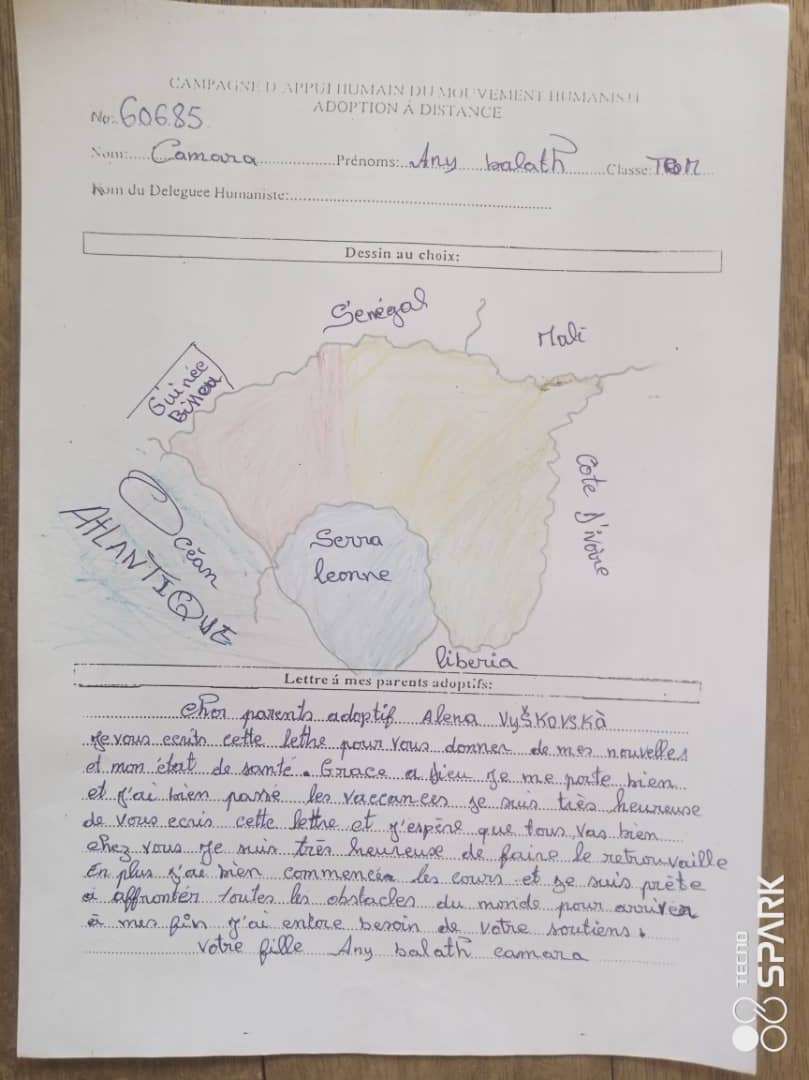 CAMPAGNE D'APPUI HUMAIN DU MOUVEMENT HUMANISTE
ADOPTION Á DISTANCE
No: 60685
Nom: Camara Prénoms: Any balath Classe:
Nom du Deleguee Humaniste:
Dessin au choix:
Senégal
Mali
Guinée
Bissau
Cote d'ivoire
Océan
ATLANTIQUE
Serra
leonne
liberia
Lettre á mes parents adoptifs:
Cher parents adoptif Alena VyŠKovsKà
Je vous ecrits cette lettre pour vous donner de mes nouvelles
et mon état de santé. Grace a Dieu je me porte bien
et j'ai bien passé les vaccances je suis très heureuse
de vous ecris cette lettre et j'espère que tous vas bien
chez vous je suis très heureuse de faire le retrouvaille
En plus j'ai bien commencée les cours et je suis prète
à affronter toutes les obstacles du monde pour arriver
à mes fin j'ai entore besoin de votre soutiens.
votre fille Any balath camara
TECNO
SPARK